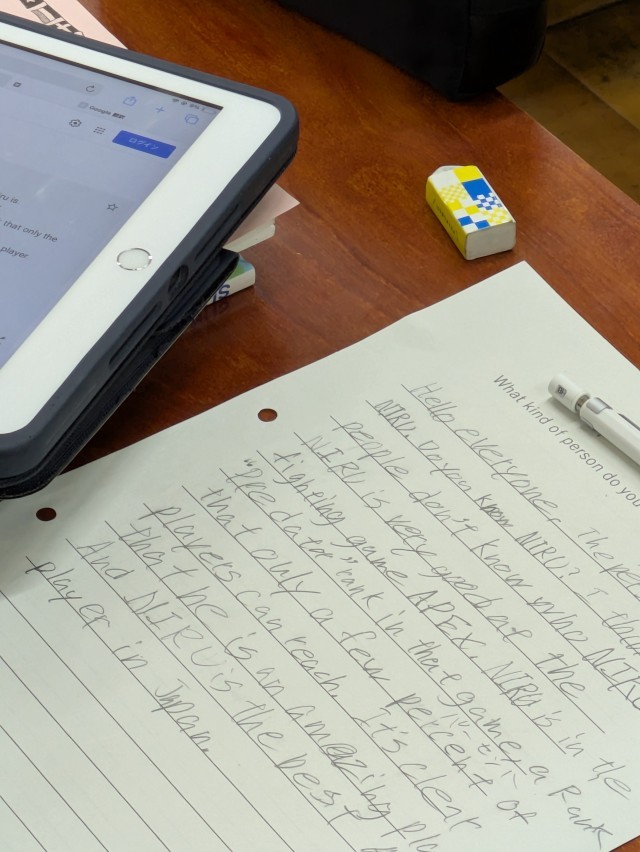 Google 翻訳
ログイン
ru is
that only the
player
What kind of person do you
Hello everyone. The pe
NIRU. Do you know NIRU? I thin
people don't know who NIRU
NIRU is very good at the
fighting game APEX. NIRU is in the
"Predator" rank in that game, a Rank
that only a few percent of
players can reach. It's clear
that he is an amazing pla
And NIRU is the best
player in Japan.